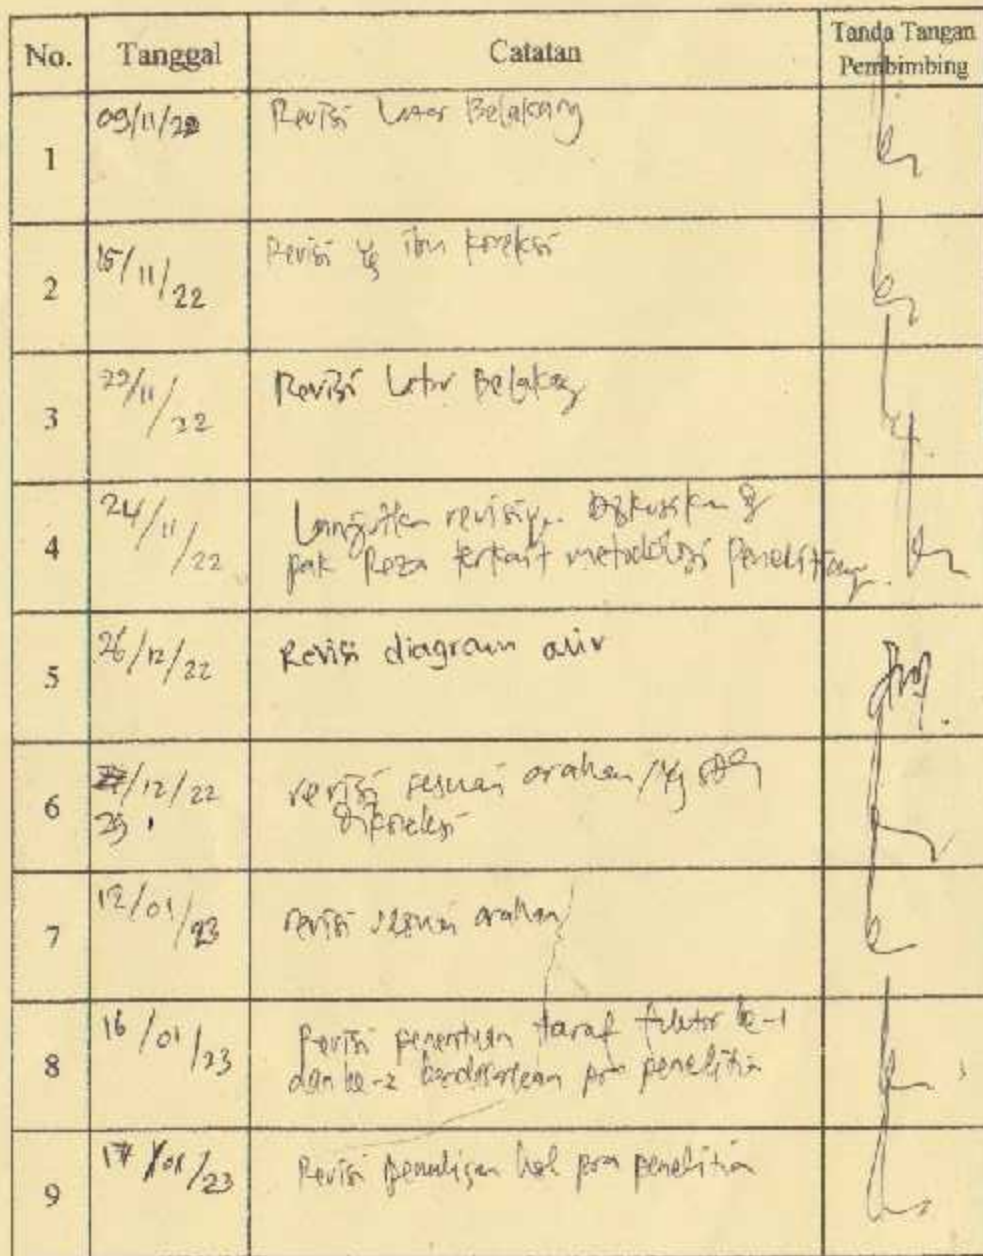 No. Tanggal Catatan Tanda Tangan
Pembimbing
1 09/11/22 Revisi Latar Belakang
2 15/11/22 Revisi yg ibu koreksi
3 22/11/22 Revisi Latar Belakang
4 24/11/22 Lanjutkan revisi Diskusikan
pak Reza terkait metodologi penelitian
5 26/12/22 Revisi diagram alir
6 /12/22 revisi sesuai arahan / yg sdh
29 dikoreksi
7 12/01/23 revisi sesuai arahan
8 16/01/23 Revisi penentuan taraf faktor ke-1
dan ke-2 berdasarkan pra penelitian
9 17/01/23 Revisi penulisan hsl pra penelitian